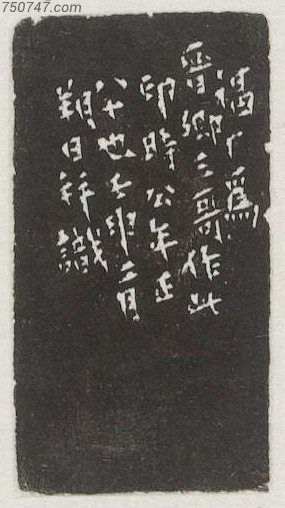 750747.com
禍才爲
晉卿三哥作此
印時公年五
十也壬申二月
朔日祥識